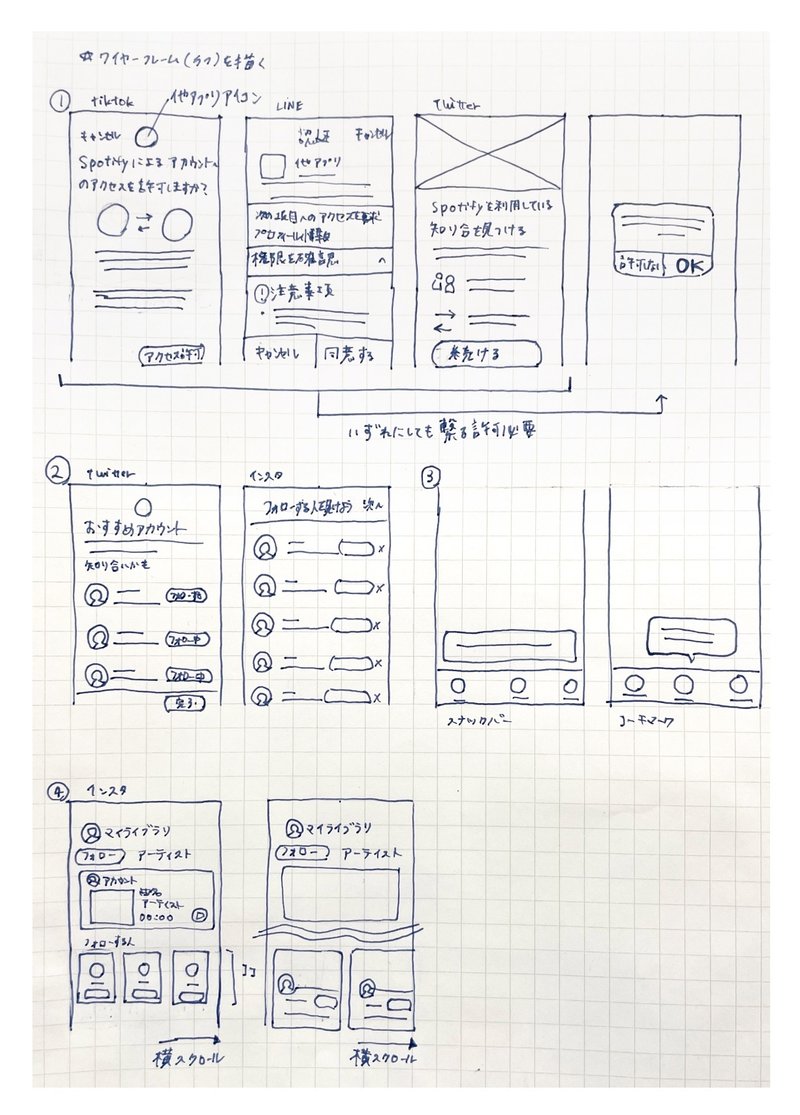 ☆ワイヤーフレーム(ラフ)を描く
① tiktok
他アプリアイコン
キャンセル
Spotifyによるアカウントへ
のアクセスを許可しますか?
アクセス許可
LINE
認証 キャンセル
他アプリ
次の項目へのアクセスを要求
プロフィール情報
権限を確認
! 注意事項
キャンセル 同意する
twitter
Spotifyを利用している
知り合を見つける
続ける
許可しない OK
いずれにしても繋る許可必要
② twitter
おすすめアカウント
知り合いかも
フォローする
フォロー中
フォロー中
完了
インスタ
フォローする人を見つけよう 次へ
③
スナックバー
コーチマーク
④ インスタ
マイライブラリ
フォロー アーティスト
アカウント
曲名
アーティスト
00:00
フォローする人
ココ
横スクロール
マイライブラリ
フォロー アーティスト
横スクロール